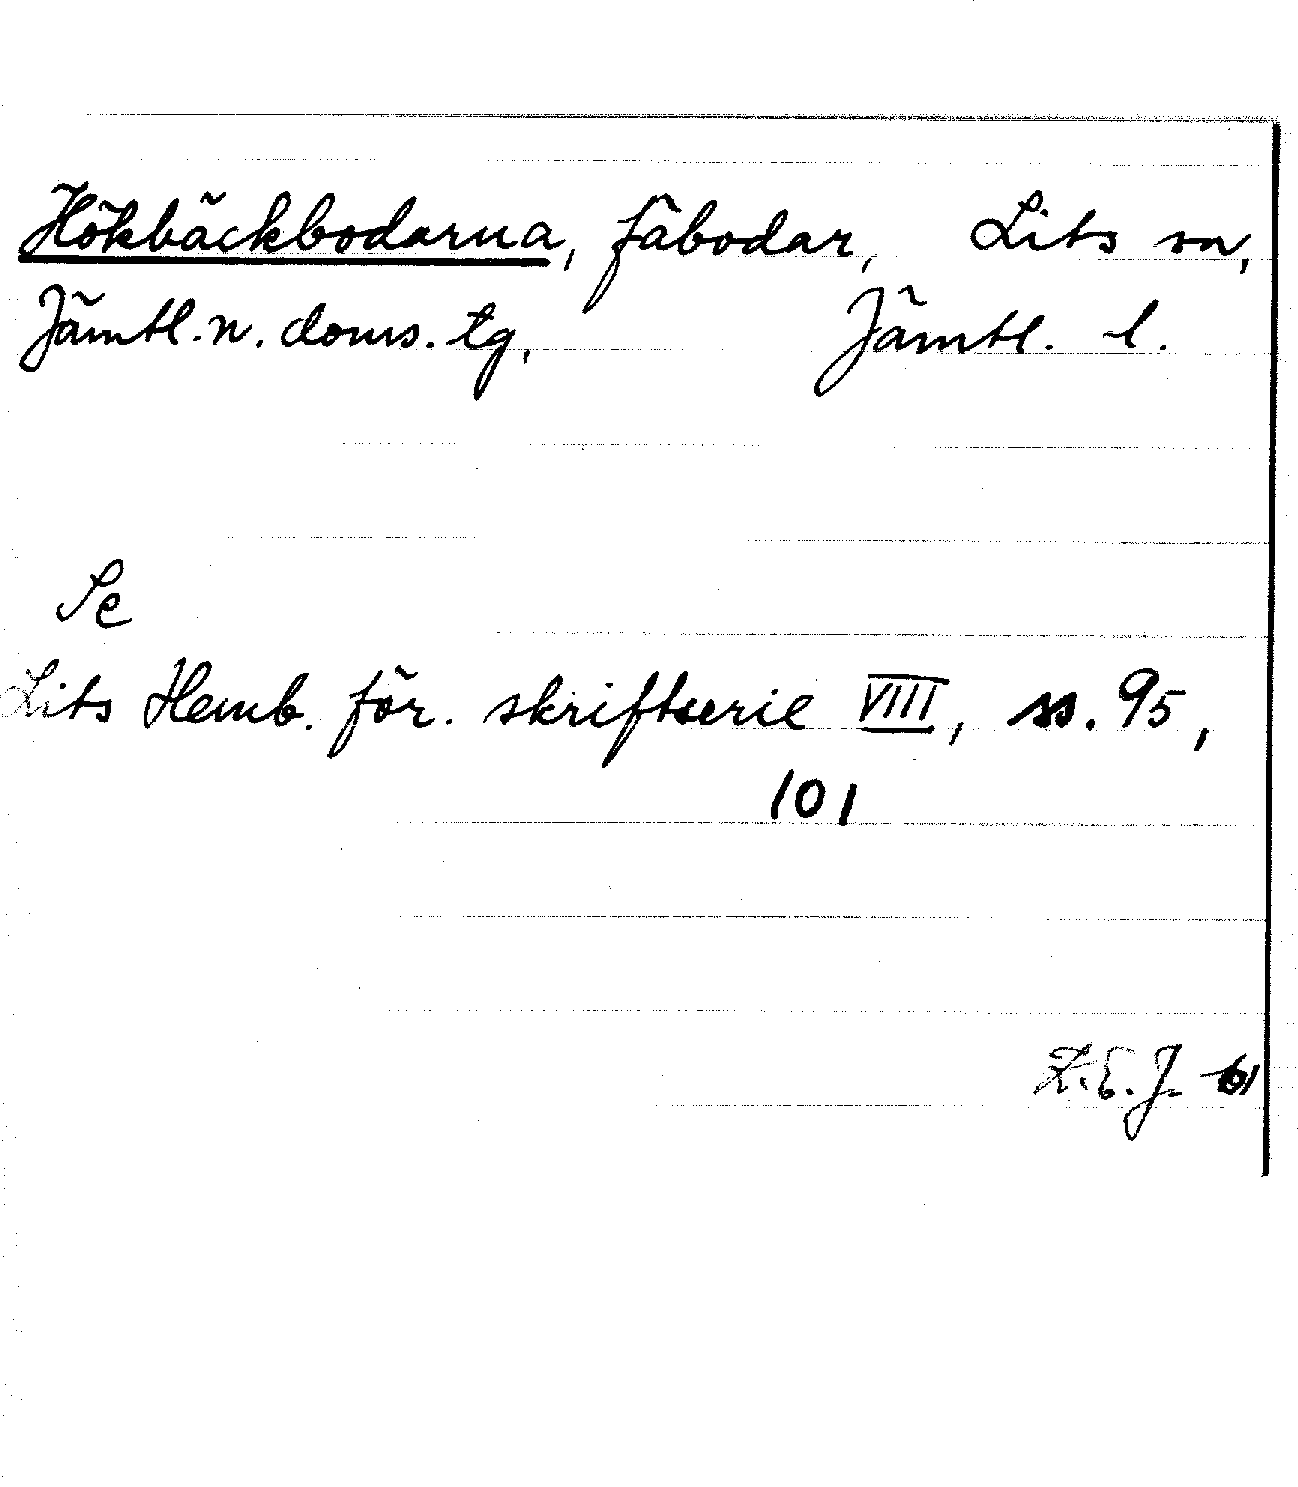 Hökbäckbodarna, fäbodar, Lits sn,
Jämtl. n. doms. tg, Jämtl. l.
Se
Lits Hemb. för. skriftserie VIII, ss. 95,
101
L.E.J. 61